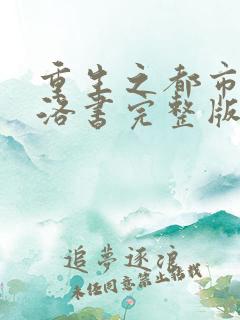 重生之都市
洛书完整版
追夢逐浪
未经同意禁止转载